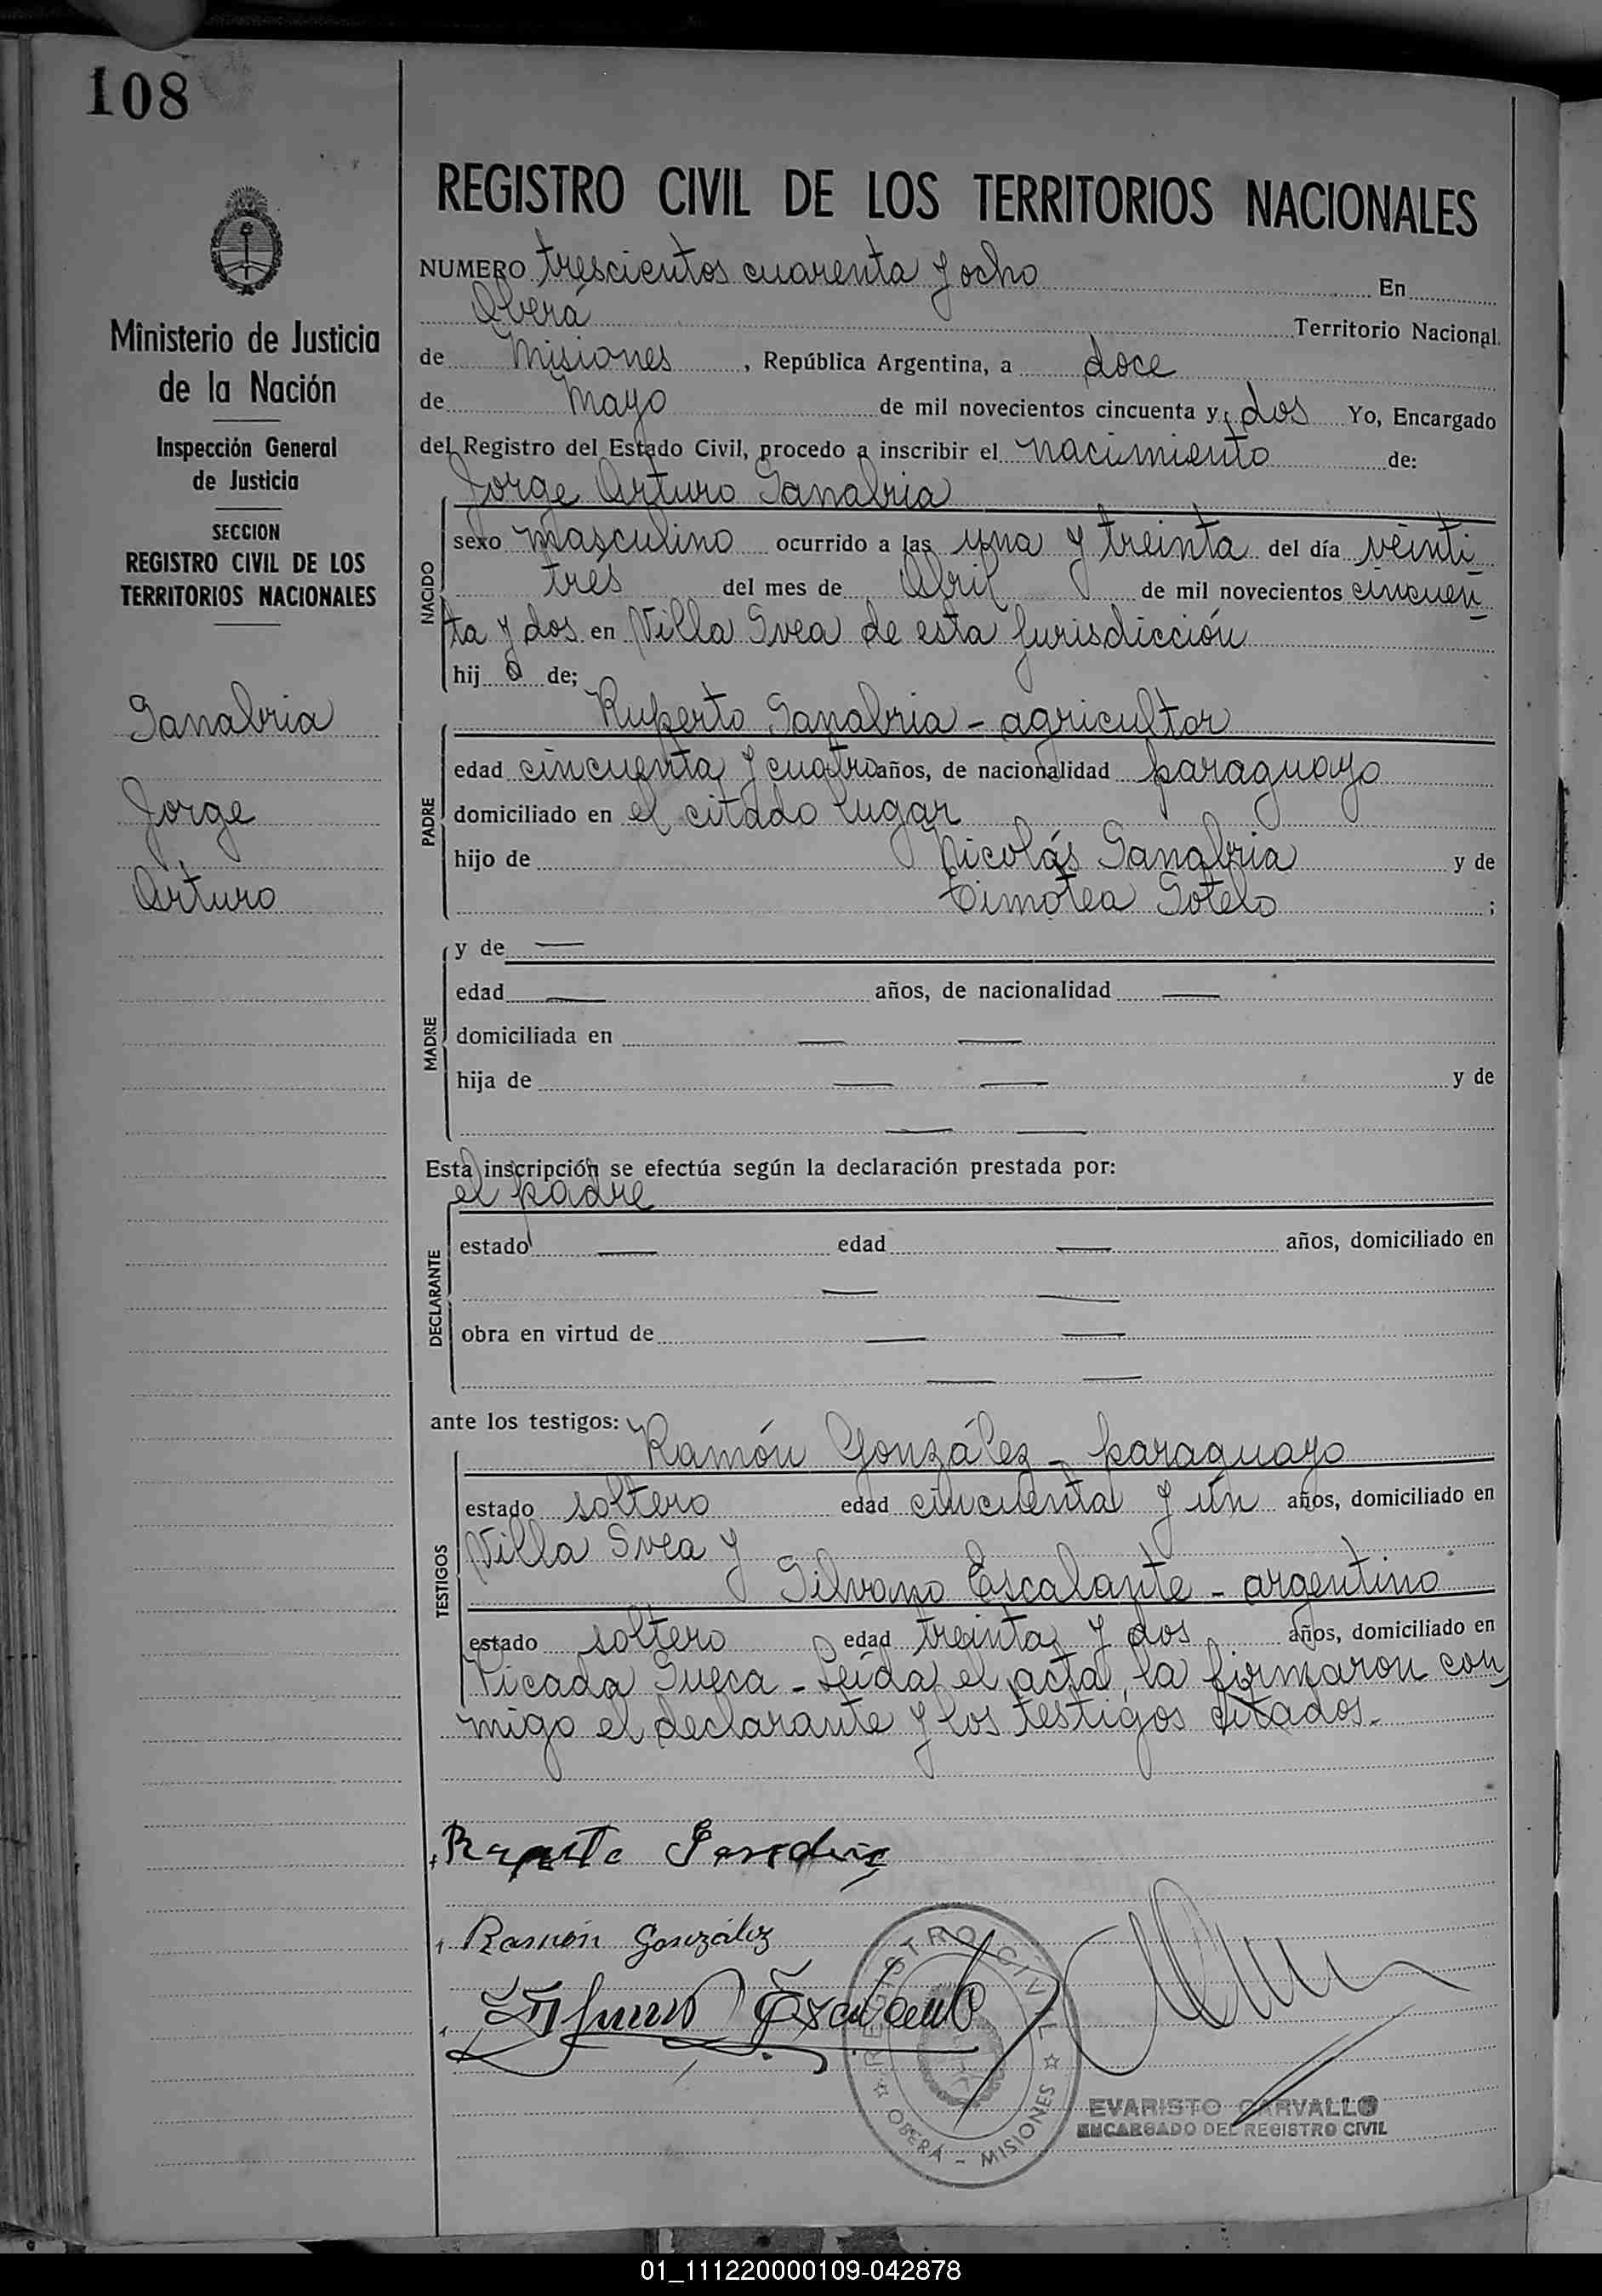 108
REGISTRO CIVIL DE LOS TERRITORIOS NACIONALES
NUMERO trescientos cuarenta y ocho En
Oberá Territorio Nacional
de Misiones , República Argentina, a doce
de Mayo de mil novecientos cincuenta y dos Yo, Encargado
del Registro del Estado Civil, procedo a inscribir el nacimiento de:
Jorge Arturo Sanabria
NACIDO
sexo masculino ocurrido a las una y treinta del día veinti
tres del mes de Abril de mil novecientos cincuen
ta y dos en Villa Svea de esta jurisdicción
hij o de;
Ruperto Sanabria - agricultor
PADRE
edad cincuenta y cuatro años, de nacionalidad paraguayo
domiciliado en el citado lugar
hijo de Nicolás Sanabria y de
Timotea Sotelo ;
MADRE
y de —
edad — años, de nacionalidad —
domiciliada en — —
hija de — — y de
— —
Esta inscripción se efectúa según la declaración prestada por:
el padre
DECLARANTE
estado — edad — años, domiciliado en
— —
obra en virtud de — —
— —
ante los testigos:
Ramón González - paraguayo
TESTIGOS
estado soltero edad cincuenta y ún años, domiciliado en
Villa Svea y
Silvano Escalante - argentino
estado soltero edad treinta y dos años, domiciliado en
Picada Sueca - Leída el acta, la firmaron con
migo el declarante y los testigos citados.-
Ministerio de Justicia
de la Nación
Inspección General
de Justicia
SECCION
REGISTRO CIVIL DE LOS
TERRITORIOS NACIONALES
Sanabria
Jorge
Arturo
Ramón González
REGISTRO CIVIL
OBERÁ - MISIONES
EVARISTO CARVALLO
ENCARGADO DEL REGISTRO CIVIL
01_111220000109-042878